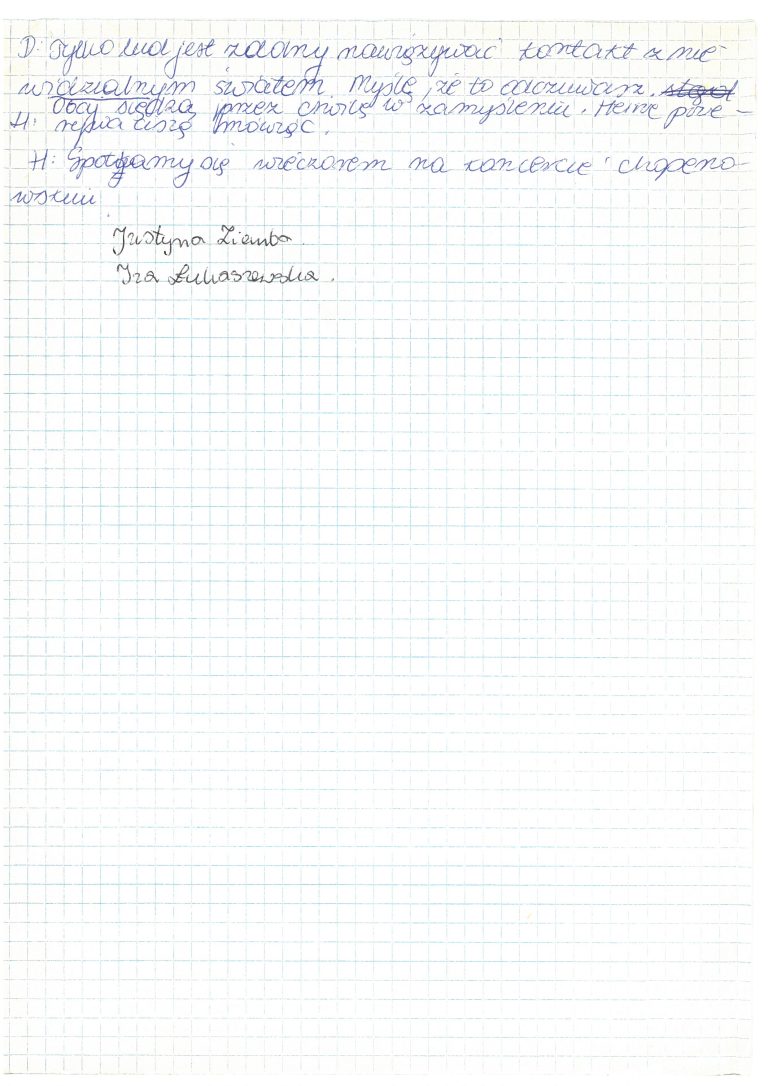 D: Tylko lud jest zdolny nawiązywać kontakt z nie-
widzialnym światem. Myślę, że to odczuwasz.
Obaj siedzą przez chwilę w zamyśleniu. Heine prze-
H: rywa ciszę mówiąc.
H: Spotkamy się wieczorem na koncercie chopeno-
wskim
Justyna Ziemba.
Iza Łukaszewska.